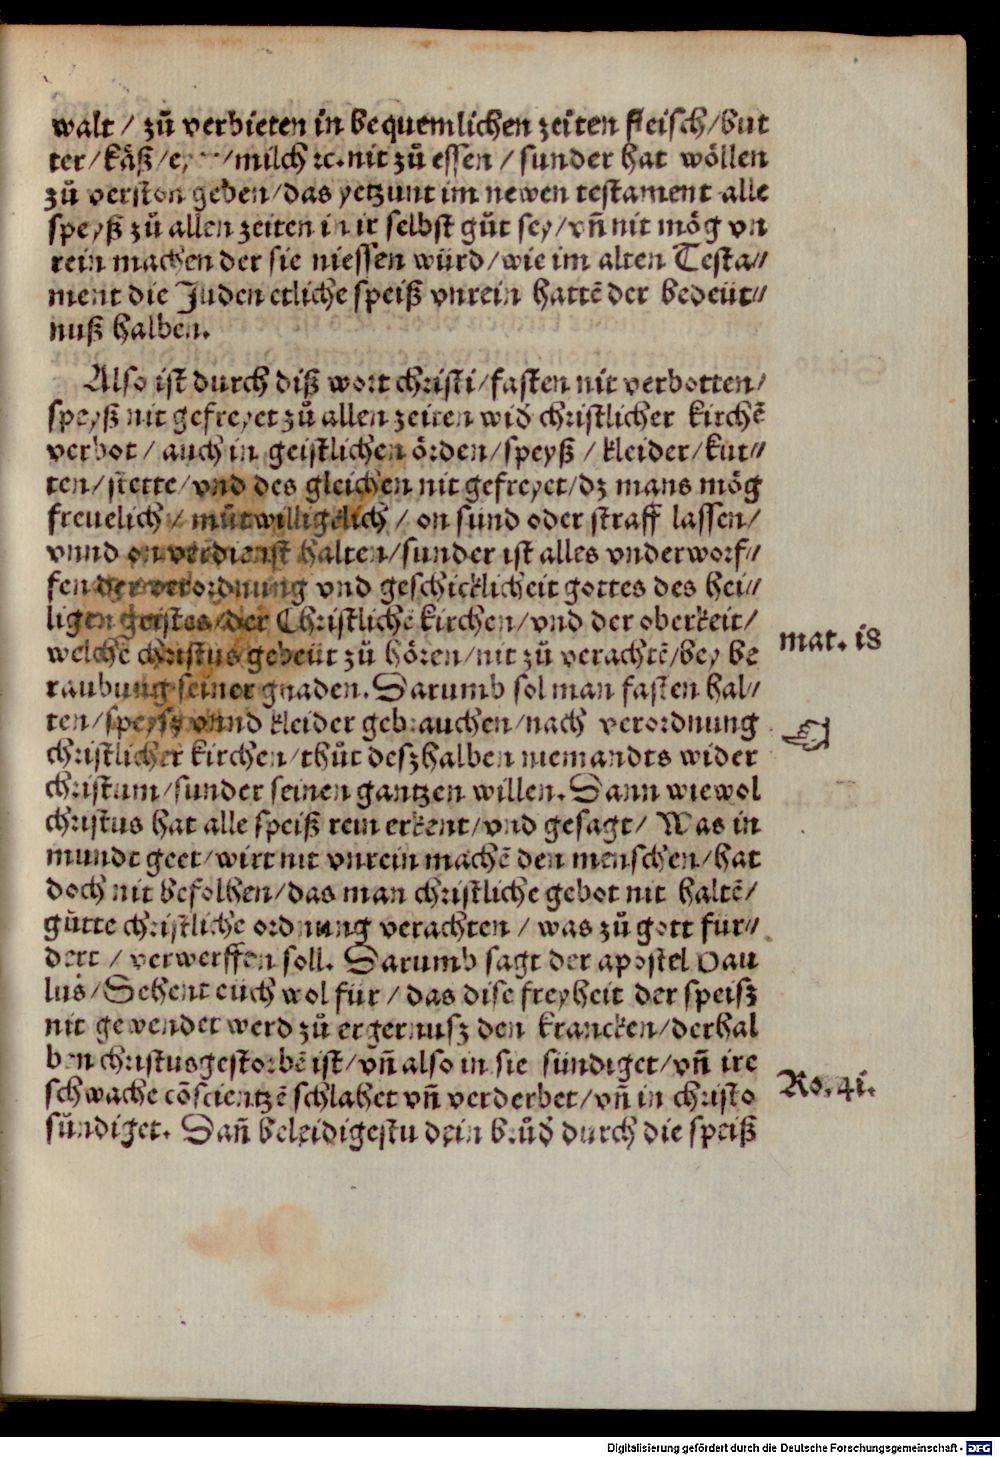 walt / zů verbieten in bequemlichen zeiten fleisch/but
ter/käß/ /milch ⁊c. nit zů essen / sunder hat wöllen
zů verston geben/das yetzunt im newen testament alle
speyß zů allen zeiten in ir selbst gůt sey/vñ nit mög vn
rein machen der sie niessen würd/wie im alten Testa⸗
ment die Juden etliche speiß vnrein hattē der bedeüt⸗
nuß halben.
Also ist durch diß wort christi/fasten nit verbotten/
speyß nit gefreyet zů allen zeiten wiď christlicher kirchē
verbot / auch in geistlichen örden/speyß / kleider/kut⸗
ten/stette/vnd des gleichen nit gefreyet/dz mans mög
freuelich / můtwilligelich / on sund oder straff lassen/
vnnd on verdienst halten/sunder ist alles vnderworf⸗
fen der verordnung vnd geschicklicheit gottes des hei⸗
ligen geistes/der Christlichē kirchen/vnd der oberkeit/
welchē christus gebeüt zů hören/nit zů verachtē/bey be
raubung seiner gnaden. Darumb sol man fasten hal⸗
ten/speysz vnnd kleider gebrauchen/nach verordnung
christlicher kirchen/thůt deszhalben niemandts wider
christum/sunder seinen gantzen willen. Dann wiewol
christus hat alle speiß rein erkent/vnd gesagt/ Was in
mundt geet/wirt nit vnrein machē den menschen/hat
doch nit befolhen/das man christliche gebot nit haltē/
gůtte christliche ordnung verachten / was zů gott für⸗
dert / verwerffen soll. Darumb sagt der apostel Pau
lus/Sehent euch wol für / das dise freyheit der speisz
nit gewendet werd zů ergernusz den krancken/derhal
ben christus gestorbē ist/vñ also in sie sündiget/vñ ire
schwache cōscientzē schlahet vñ verderbet/vñ in christo
sündiget. Dañ beleidigestu dein brůď durch die speiß
mat. i8
Ro. 4i.
Digitalisierung gefördert durch die Deutsche Forschungsgemeinschaft - DFG